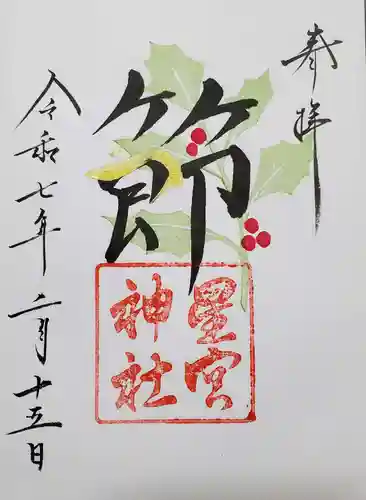 奉拝
節
星宮
神社
令和七年二月十五日